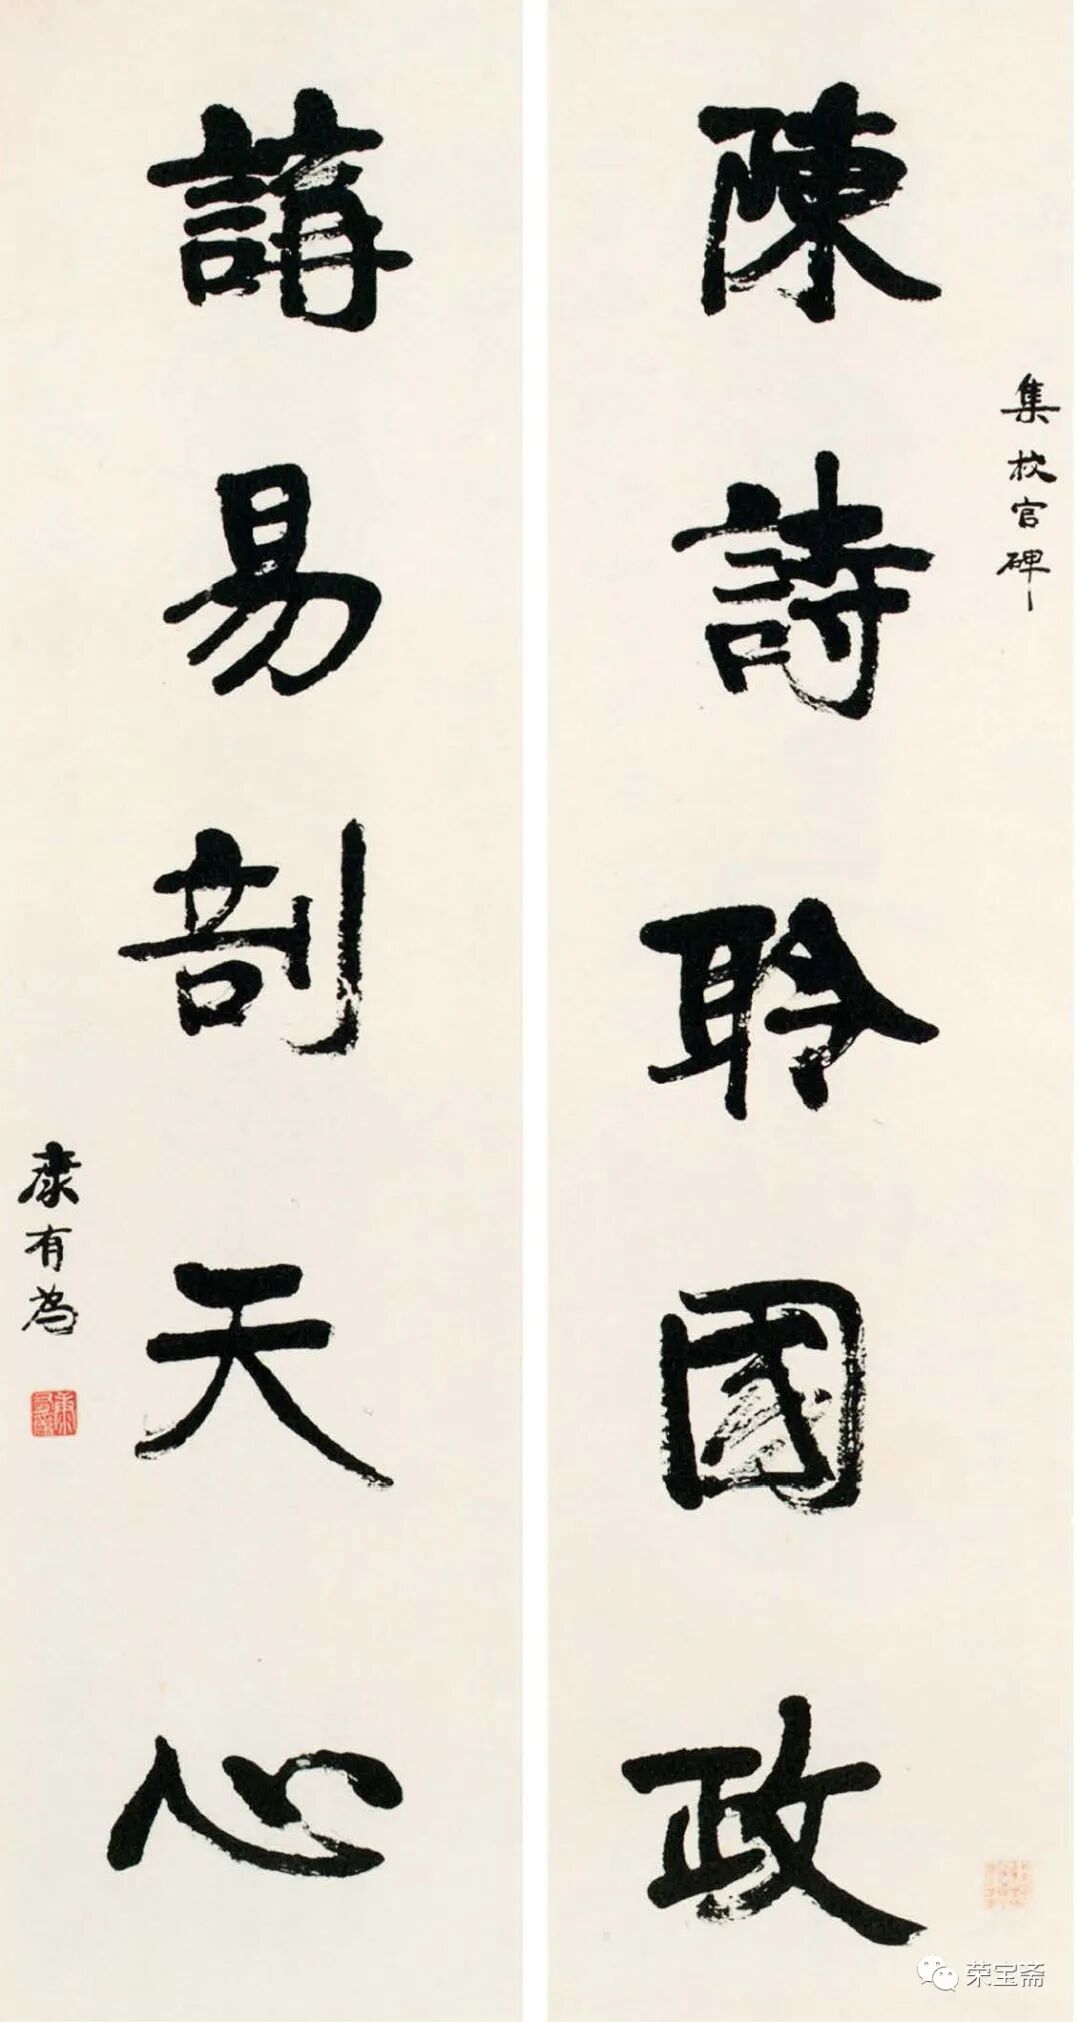 集校官碑
陳詩聆國政
講易剖天心
康有為
荣宝斋